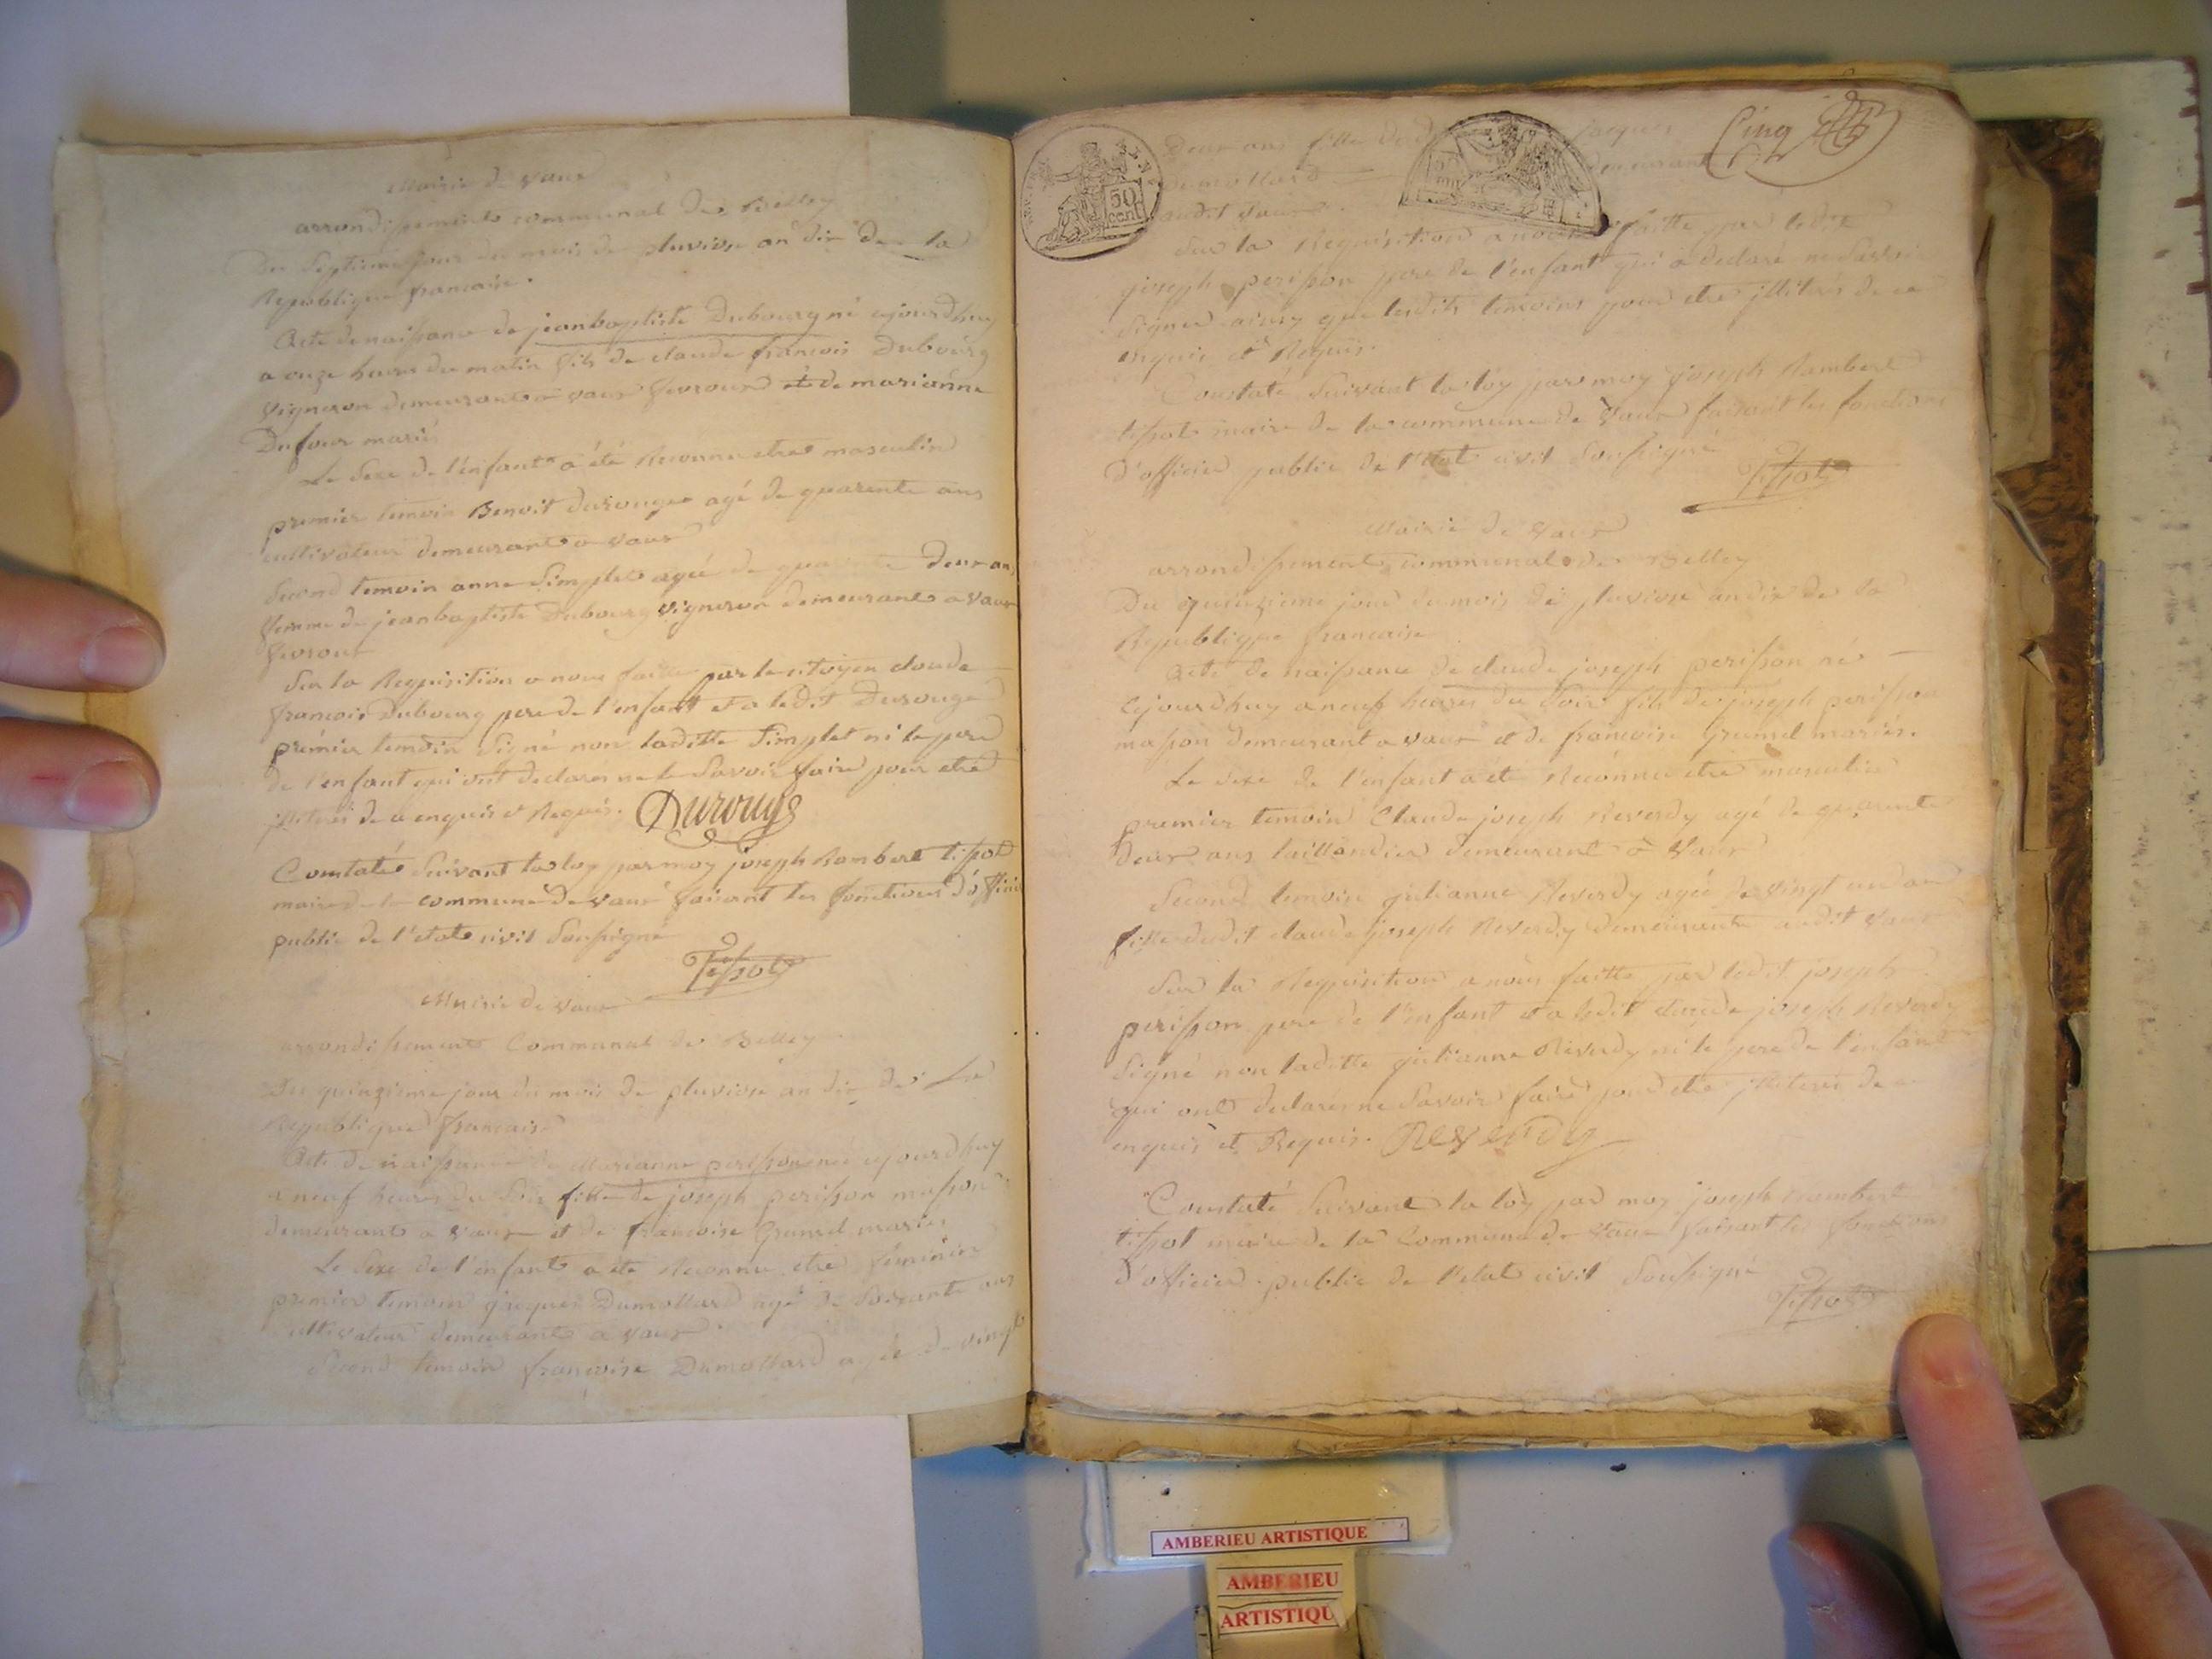 Mairie de vaux
arrondissement communal de Belley
Du septieme jour du mois de pluviose an dix de la
Republique francaise.
Acte de naissance de jeanbaptiste Dubourg né cejourdhuy
a onze heures du matin fils de claude francois Dubourg
vigneron demeurant a vaux fevroux et de marianne
Dufour mariés
Le sexe de l'enfant a été Reconnu etre masculin
premier temoin Benoit durouge agé de quarente ans
cultivateur demeurant a vaux
Second temoin anne Simplet agée de quarente Deux ans
femme de jeanbaptiste Dubourg vigneron demeurant a vaux
fevroux
Sur la Requisition a nous faitte par le citoyen claude
francois Dubourg pere de l'enfant et a ledit Durouge
premier temoin signé non laditte Simplet ni le pere
de l'enfant qui ont declarés ne le Savoir faire pour etre
illiterés de ce enquis et Requis. Durouge
Constaté Suivant la loy par moy joseph Rambert tissot
maire de la commune de vaux faisant les fonctions d'officier
public de l'etat civil Soussigné
Tissot
Mairie de vaux
arrondissement Communal de Belley
Du quinzieme jour du mois de pluviose an dix de La
Republique francaise
Acte de naissance de Marianne perisson née cejourdhuy
a neuf heures du Soir fille de joseph perisson masson
demeurant a vaux et de francoise Grumel mariés
Le Sexe de l'enfant a été Reconnu etre feminin
premier temoin jacques Dumollard agé de Soixante ans
cultivateur demeurant a vaux
Second temoin francoise Dumollard agée de vingt
Cinq
50
cent
Deux ans fille de jacques
Dumollard demeurant
audit vaux
Sur la Requisition a nous faitte par ledit
joseph perisson pere de l'enfant qui a declaré ne Savoir
Signer ainsy que lesdits temoins pour etre illiterés de ce
enquis et Requis.
Constaté Suivant la loy par moy joseph Rambert
tissot maire de la commune de vaux faisant les fonctions
d'officier public de l'etat civil Soussigné
Tissot
Mairie de vaux
arrondissement communal de Belley
Du quinzieme jour du mois de pluviose an dix de la
Republique francaise
Acte de naissance de claude joseph perisson né
cejourdhuy a neuf heures du Soir fils de joseph perisson
masson demeurant a vaux et de francoise Grumel mariés.
Le Sexe de l'enfant a été Reconnu etre masculin
premier temoin Claude joseph Reverdy agé de quarente
Deux ans taillandier demeurant a vaux
Second temoin julianne Reverdy agée de vingt un an
fille dudit claude joseph Reverdy demeurante audit vaux
Sur la Requisition a nous faitte par ledit joseph
perisson pere de l'enfant et a ledit claude joseph Reverdy
Signé non laditte julianne Reverdy ni le pere de l'enfant
qui ont declarés ne Savoir faire pour etre illiterés de ce
enquis et Requis. Reverdy
Constaté Suivant la loy par moy joseph Rambert
tissot maire de la Commune de vaux faisant les fonctions
d'officier public de l'etat civil Soussigné
Tissot
AMBERIEU ARTISTIQUE
AMBERIEU
ARTISTIQU